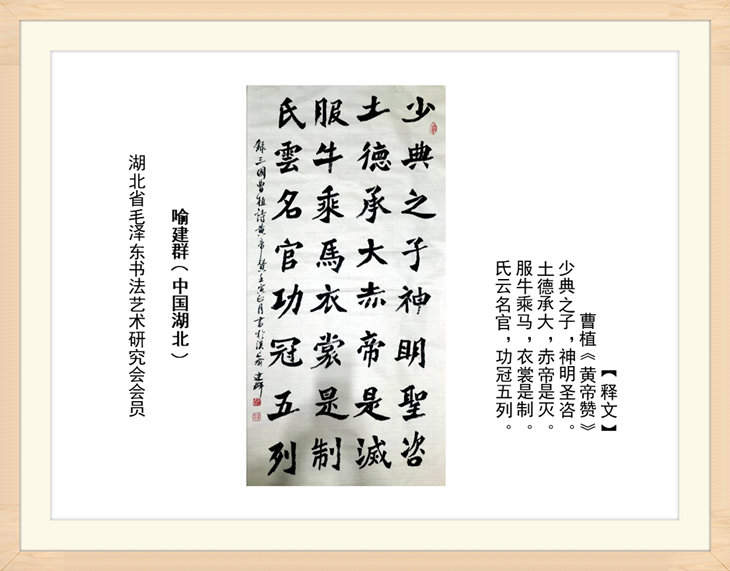 【释文】
曹植《黄帝赞》
少典之子，神明圣咨。
土德承大，赤帝是灭。
服牛乘马，衣裳是制。
氏云名官，功冠五列。
少典之子神明聖咨
土德承大赤帝是滅
服牛乘馬衣裳是制
氏雲名官功冠五列
錄三國曹植詩黄帝贊壬寅正月書於漢喻建群
喻建群（中国湖北）
湖北省毛泽东书法艺术研究会会员